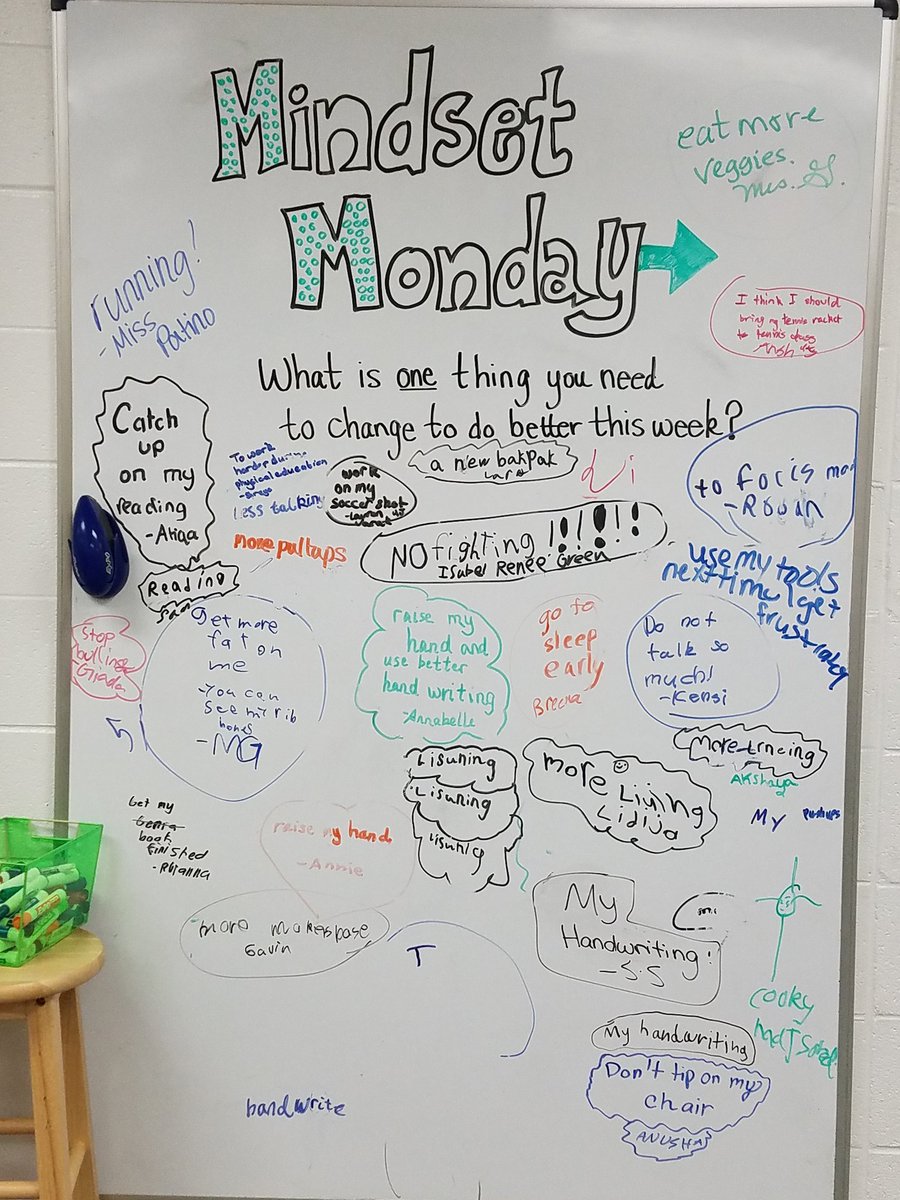 Mindset
Monday
eat more
veggies.
Mrs. G.
running!
- Miss
Patino
I think I should
bring my tennis racket
to tennis class
What is one thing you need
to change to do better this week?
Catch
up
on my
reading
- Atiqa
To work
harder during
physical education
less talking
work
on my
soccer shot
a new bakpak
to focis
- Rowan
more pullups
NO fighting !!!!!!
Isabel Renee Green
use my tools
next time I get
frustrated
Reading
Sam
Stop
bullinge
Giada
Get more
fat on
me
- You can
see my rib
bones
- MG
raise my
hand and
use better
hand writing
- Annabelle
go to
sleep
early
Breana
Do not
talk so
much!
- Kensi
More trncing
Akshaya
Lisuning
Lisuning
lisunig
more
Liying
Lidija
My pushups
Get my
book
finished
- Rhianna
raise my hand
- Annie
more makerspase
Gavin
T
My
Handwriting!
- S.S
cooky
My handwriting
Don't tip on my
chair
ANUSHA
handwrite